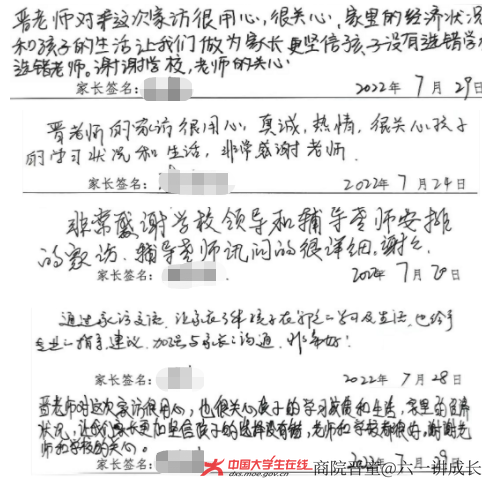 晋老师对于这次家访很用心,很关心,家里的经济状况
和孩子的生活让我们做为家长更坚信孩子没有选错学校
选错老师。谢谢学校,老师的关心
家长签名: 2022年7月29日
晋老师的家访很用心,真诚,热情,很关心孩子
的学习状况和生活,非常感谢老师.
家长签名: 2022年7月24日
非常感谢学校领导和辅导老师安排
的家访.辅导老师讯问的很详细.谢谢
家长签名: 2022年7月20日
通过家访交流,让家长了解孩子在 学习及生活,也给予
专业 指导建议.加强与家长 沟通.非常好!
家长签名: 2022年7月28日
晋老师对这次家访很用心,也很关心孩子的学习成绩和生活,家里的经济
状况,让我们家长更加坚信孩子的选择没有错,老师和学校都很好,谢谢老
师和学校的关心。
中国大学生在线 商院晋堂@六一讲成长
2022年7月29日